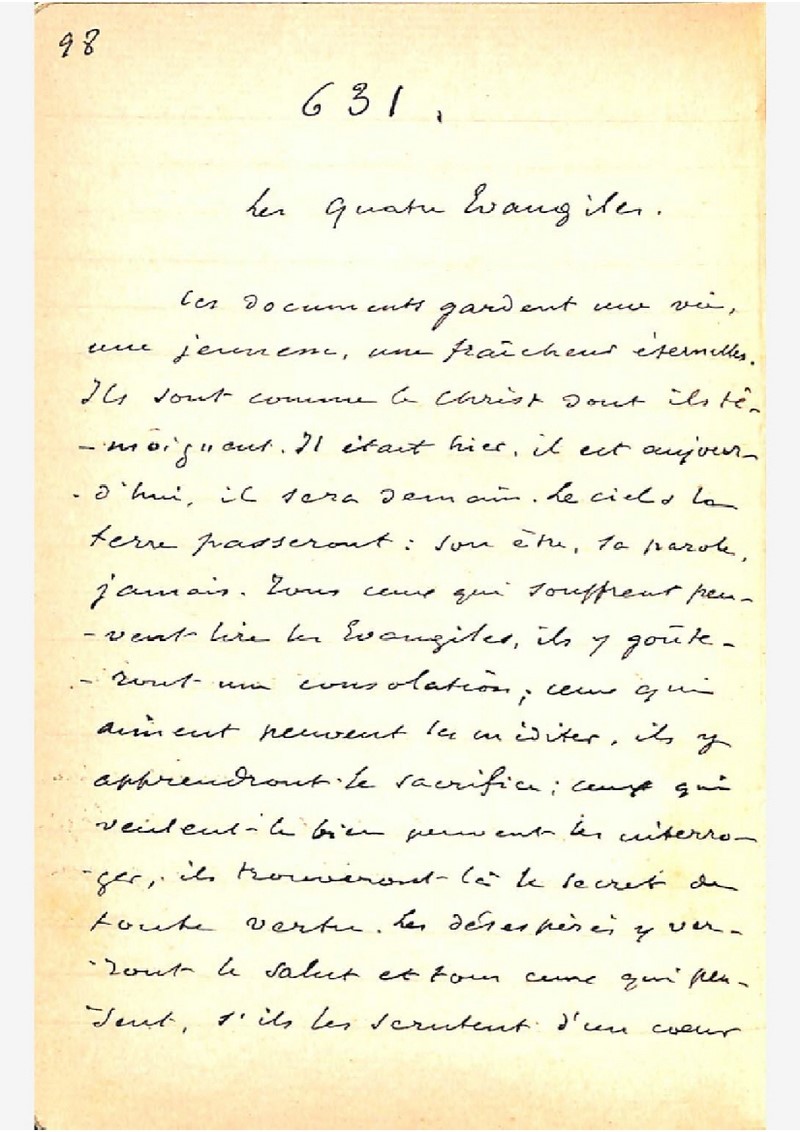 98
631.
Les Quatre Evangiles.
Ces documents gardent une vie,
une jeunesse, une fraîcheur éternelles.
Ils sont comme le Christ dont ils té-
-moignent. Il était hier, il est aujour-
-d'hui, il sera demain. Le ciel & la
terre passeront : son être, sa parole,
jamais. Tous ceux qui souffrent peu-
-vent lire les Evangiles, ils y goûte-
-ront une consolation ; ceux qui
aiment peuvent les méditer, ils y
apprendront le sacrifice ; ceux qui
veulent le bien peuvent les interro-
-ger, ils trouveront là le secret de
toute vertu. Les désespérés y ver-
-ront le salut et tous ceux qui pen-
-sent, s'ils les scrutent d'un coeur